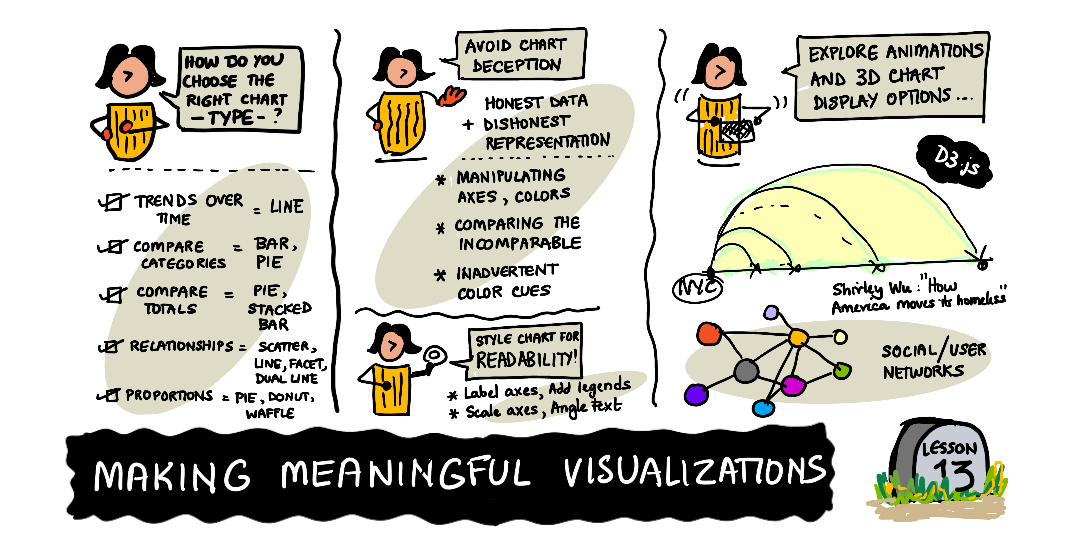 HOW DO YOU
CHOOSE THE
RIGHT CHART
- TYPE - ?
TRENDS OVER
TIME
= LINE
COMPARE
CATEGORIES
= BAR,
PIE
COMPARE
TOTALS
= PIE,
STACKED
BAR
RELATIONSHIPS = SCATTER,
LINE, FACET,
DUAL LINE
PROPORTIONS = PIE, DONUT,
WAFFLE
AVOID CHART
DECEPTION
HONEST DATA
+ DISHONEST
REPRESENTATION
* MANIPULATING
AXES, COLORS
* COMPARING THE
INCOMPARABLE
* INADVERTENT
COLOR CUES
STYLE CHART FOR
READABILITY!
* Label axes, Add legends
* Scale axes, Angle text
EXPLORE ANIMATIONS
AND 3D CHART
DISPLAY OPTIONS ...
D3.js
NYC
Shirley Wu: "How
America moves its homeless"
SOCIAL/USER
NETWORKS
MAKING MEANINGFUL VISUALIZATIONS
LESSON
13